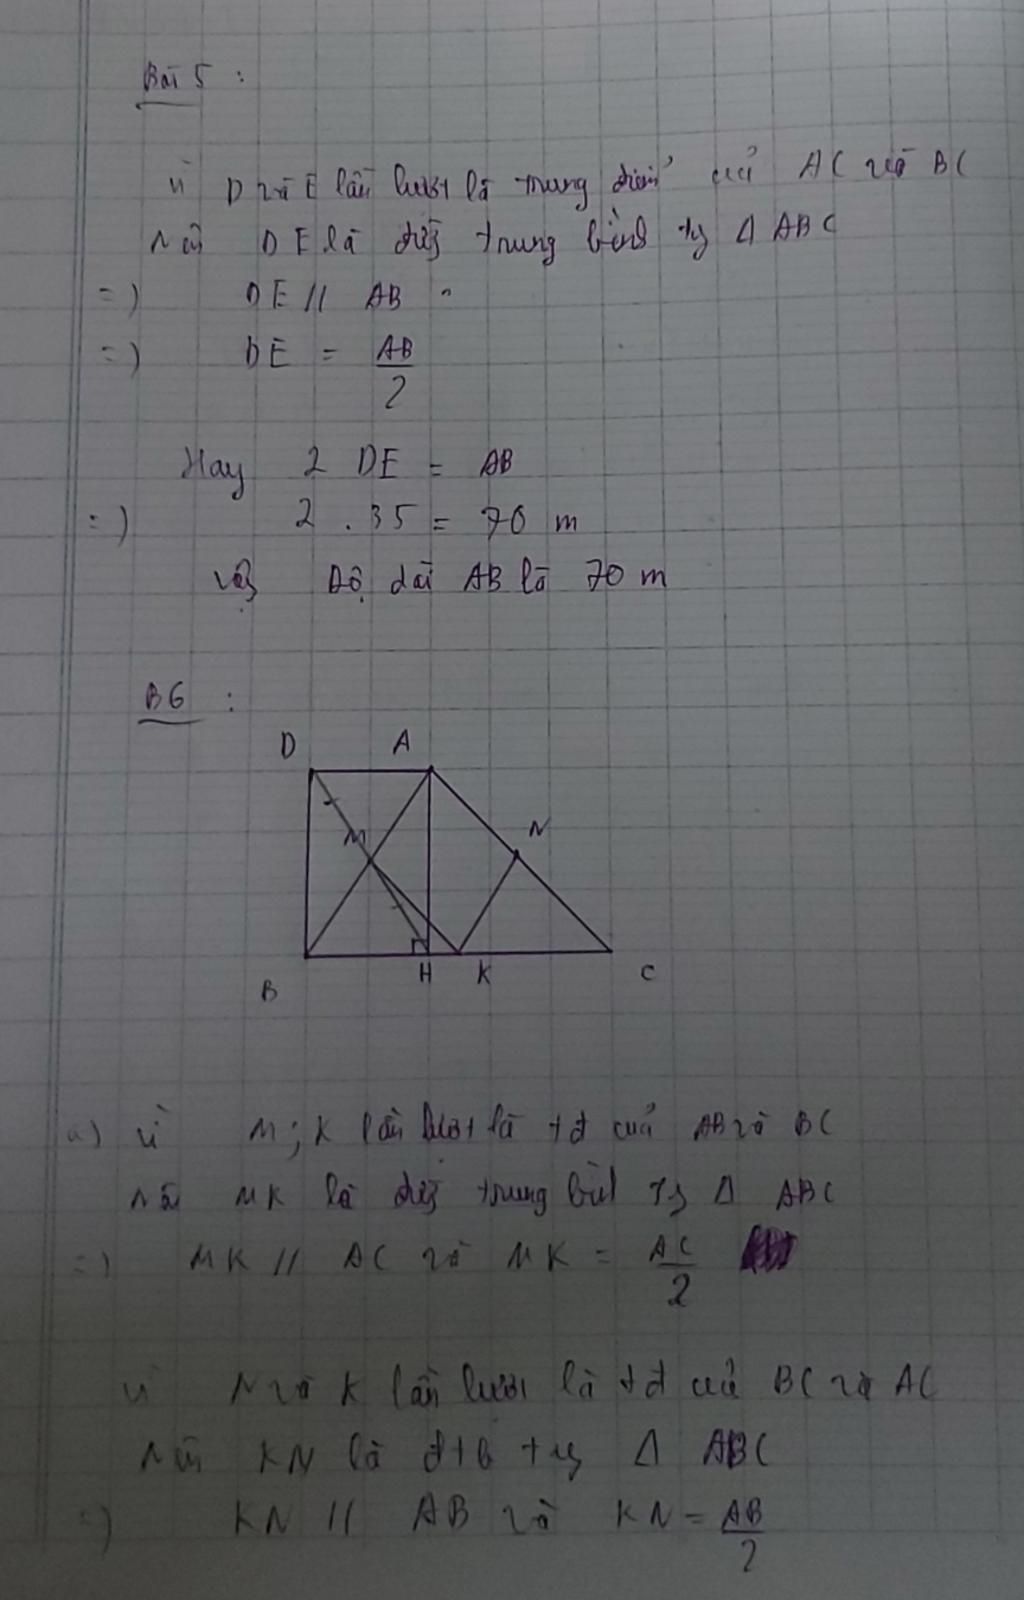 Bài 5 :
Vì D và E lần lượt là trung điểm của AC và BC
Nên DE là đường trung bình Δ ABC
=) DE // AB
=) DE = AB/2
Hay 2 DE = AB
=) 2 . 35 = 70 m
Vậy Độ dài AB là 70 m
B6 :
D A
M N
B H K C
a) Vì M; K lần lượt là tđ của AB và BC
Nên MK là đường trung bình Δ ABC
=) MK // AC và MK = AC/2
Vì N và K lần lượt là tđ của BC và AC
Nên KN là đtb Δ ABC
=) KN // AB và KN = AB/2